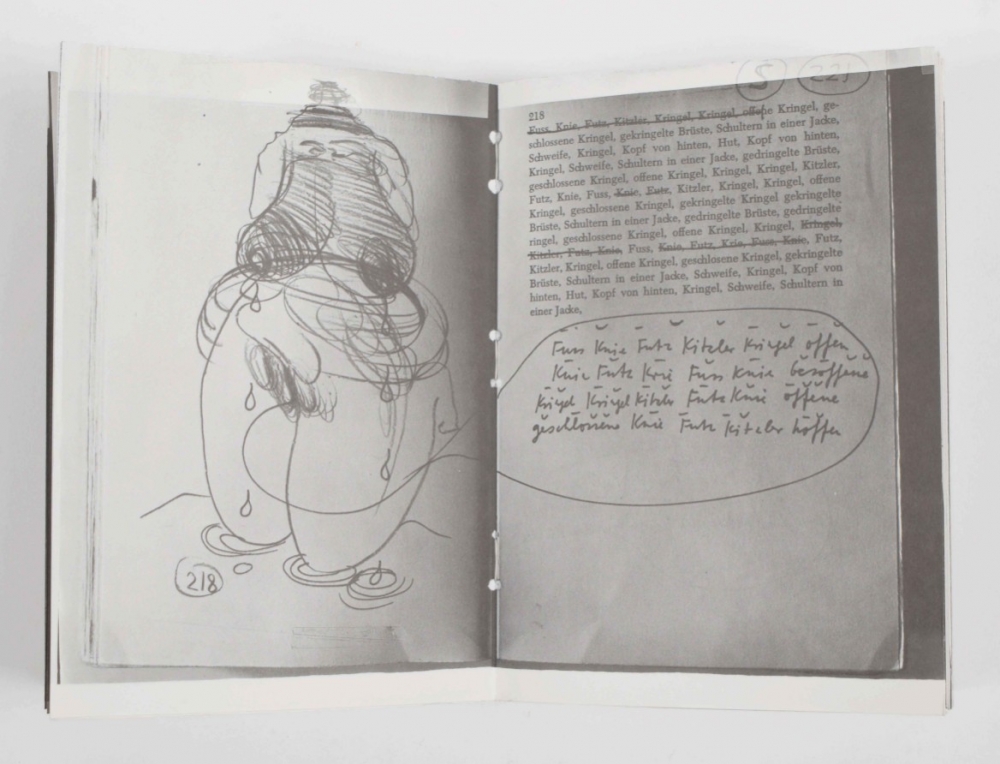 218
S 221
218
Fuss, Knie, Futz, Kitzler, Kringel, Kringel, offene Kringel, ge-
schlossene Kringel, gekringelte Brüste, Schultern in einer Jacke,
Schweife, Kringel, Kopf von hinten, Hut, Kopf von hinten,
Kringel, Schweife, Schultern in einer Jacke, gedringelte Brüste,
geschlossene Kringel, offene Kringel, Kringel, Kringel, Kitzler,
Futz, Knie, Fuss, Knie, Futz, Kitzler, Kringel, Kringel, offene
Kringel, geschlossene Kringel, gekringelte Kringel gekringelte
Brüste, Schultern in einer Jacke, gedringelte Brüste, gedringelte
ringel, geschlossene Kringel, offene Kringel, Kringel, Kringel,
Kitzler, Futz, Knie, Fuss, Knie, Futz, Knie, Fuss, Knie, Futz,
Kitzler, Kringel, offene Kringel, geschlosene Kringel, gekringelte
Brüste, Schultern in einer Jacke, Schweife, Kringel, Kopf von
hinten, Hut, Kopf von hinten, Kringel, Schweife, Schultern in
einer Jacke,
Fuss Knie Futz Kitzler Kringel offen
Knie Futz Knie Fuss Knie besoffene
Kringel Kringel Kitzler Futz Knie offene
geschlossene Knie Futz Kitzler hoffen